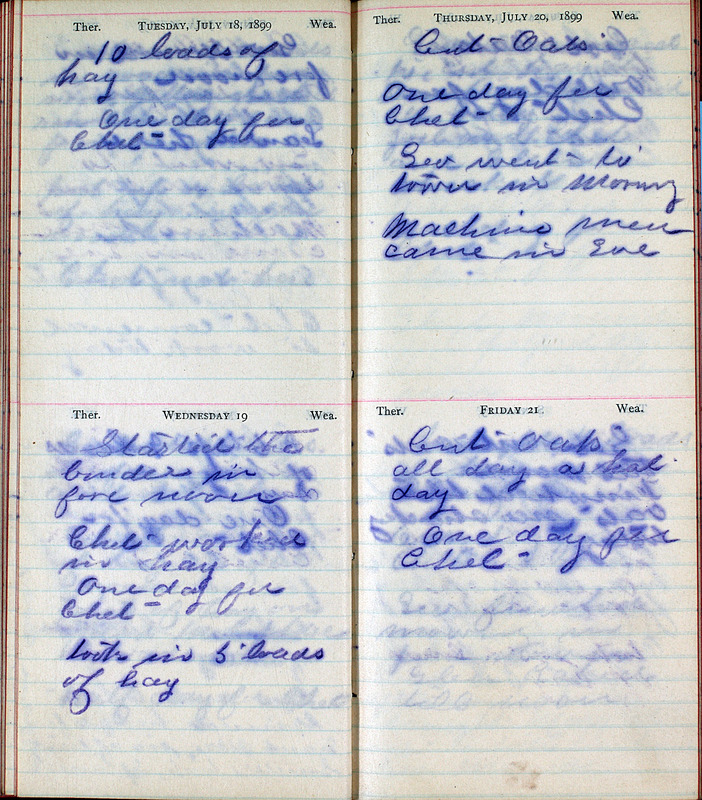 Ther. Tuesday, July 18, 1899 Wea.
10 loads of
hay
One day for
Chet
Ther. Wednesday 19 Wea.
Started the
binder in
fore noon
Chet worked
in hay
One day for
Chet
took in 5 loads
of hay
Ther. Thursday, July 20, 1899 Wea.
Cut Oats
One day for
Chet
Geo went to
town in Morning
Machine men
came in Eve
Ther. Friday 21 Wea.
Cut Oats
all day a hot
day
One day for
Chet